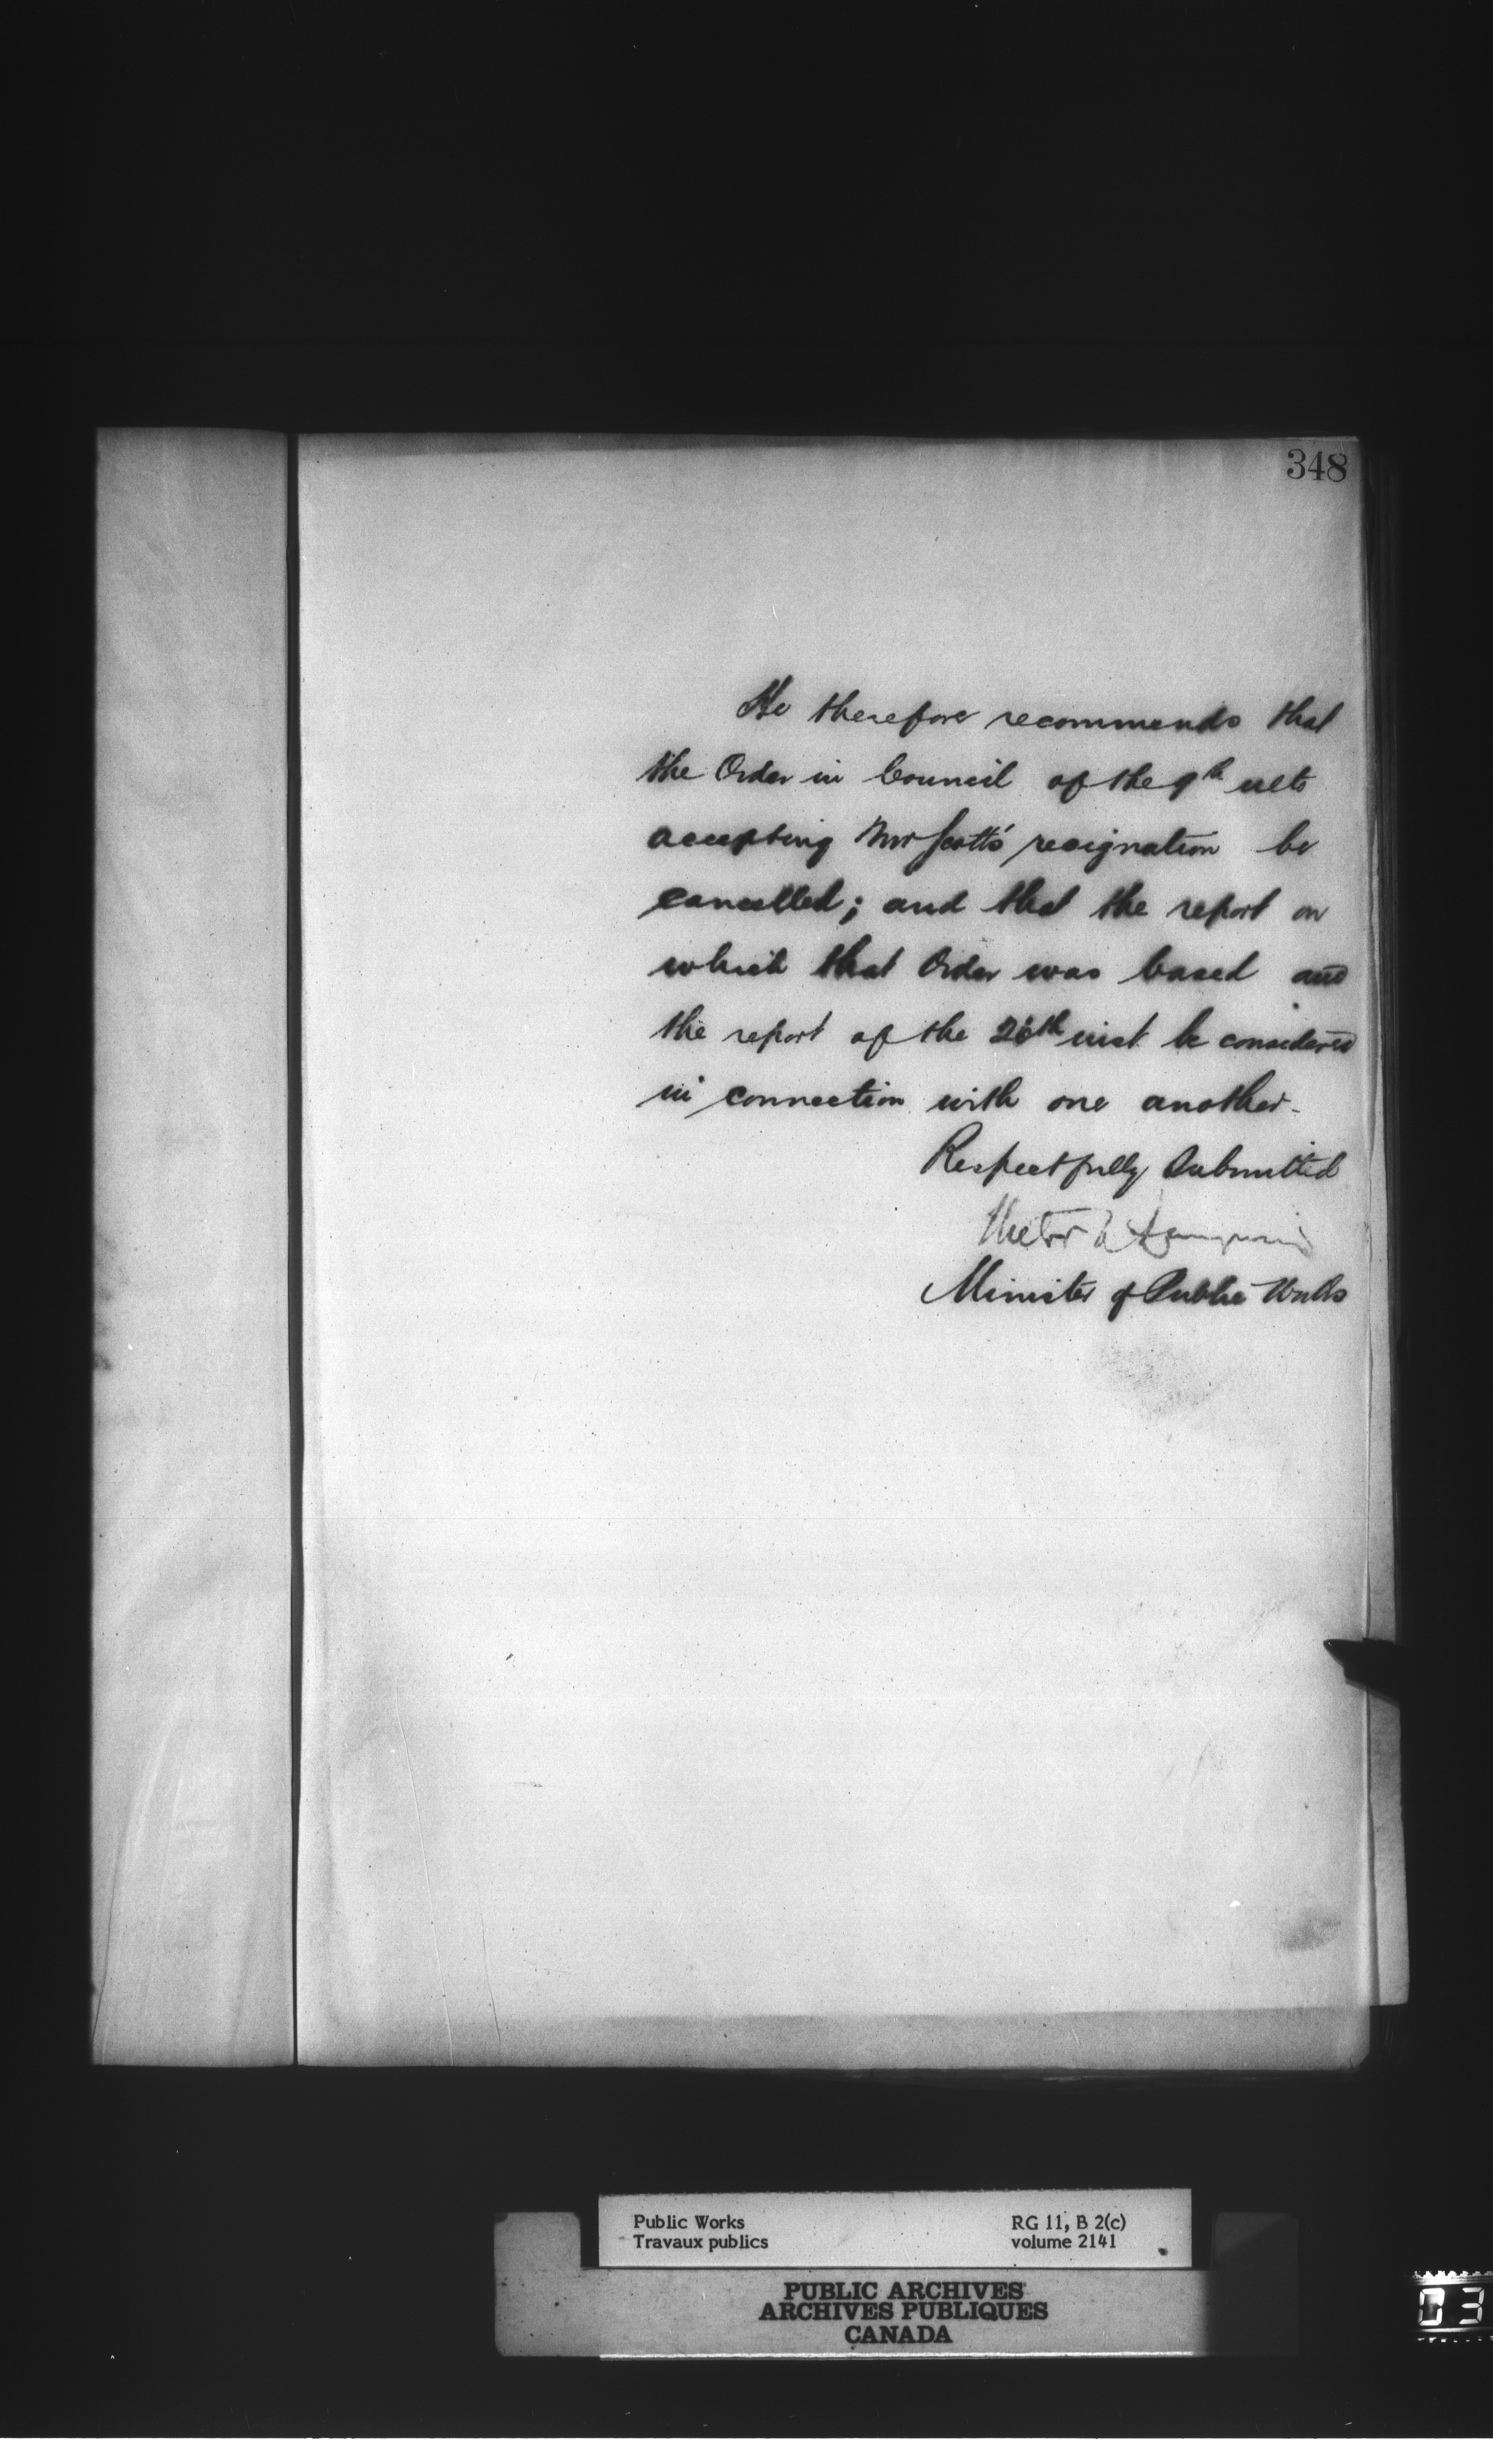 348
He therefore recommends that
the Order in Council of the 9th ulto
accepting Mr Scott's resignation be
cancelled; and that the report on
which that Order was based and
the report of the 26th inst be considered
in connection with one another.
Respectfully Submitted
Hector L Langevin
Minister of Public Works
Public Works
Travaux publics
RG 11, B 2(c)
volume 2141
PUBLIC ARCHIVES
ARCHIVES PUBLIQUES
CANADA
03